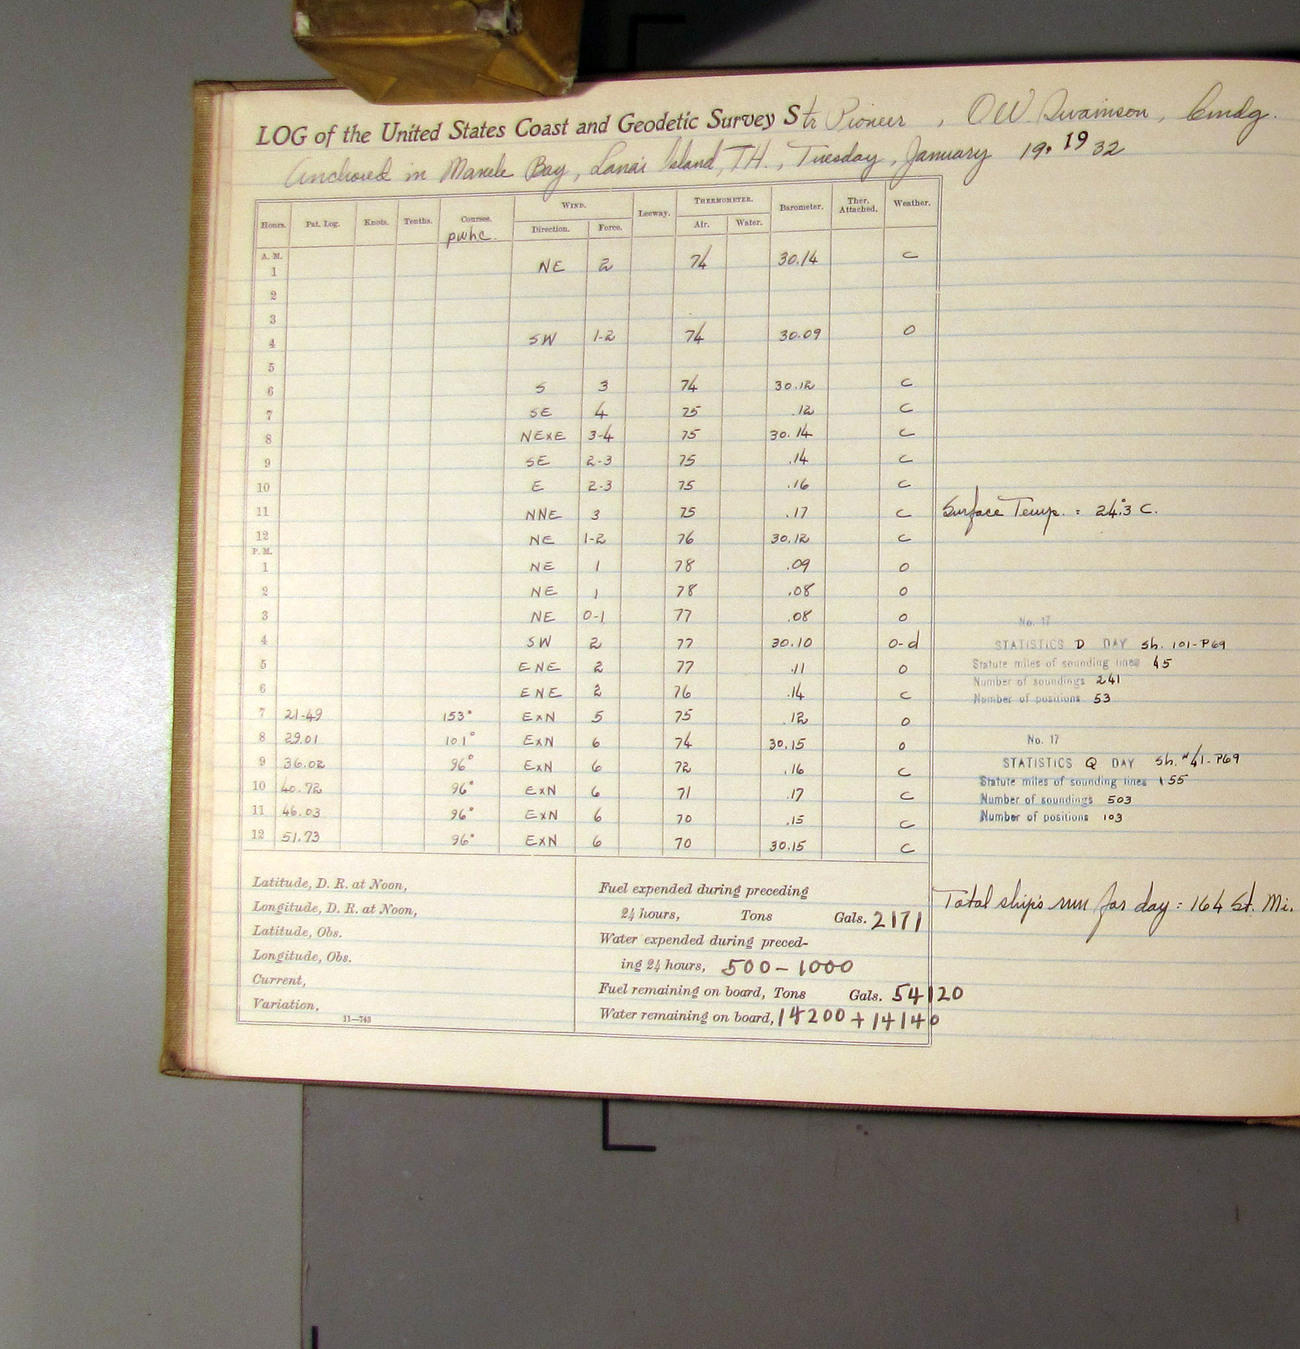 LOG of the United States Coast and Geodetic Survey Str Pioneer, O.W. Swainson, Cmdg.
Anchored in Manele Bay, Lanai Island, T.H., Tuesday, January 19, 1932
Hours. Pat. Log. Knots. Tenths. Courses. WIND. Leeway. THERMOMETER. Barometer. Ther. Attached. Weather.
pwhc. Direction. Force. Air. Water.
A. M.
1 NE 2 74 30.14 c
2
3
4 SW 1-2 74 30.09 o
5
6 S 3 74 30.12 c
7 SE 4 75 .12 c
8 NExE 3-4 75 30.14 c
9 SE 2-3 75 .14 c
10 E 2-3 75 .16 c
11 NNE 3 75 .17 c Surface Temp. = 24°.3 C.
12 NE 1-2 76 30.12 c
P. M.
1 NE 1 78 .09 o
2 NE 1 78 .08 o
3 NE 0-1 77 .08 o
No. 17
4 SW 2 77 30.10 o-d STATISTICS D DAY Sh. 101-P69
5 ENE 2 77 .11 o Statute miles of sounding lines 45
Number of soundings 241
6 ENE 2 76 .14 c Number of positions 53
7 21.49 153° ExN 5 75 .12 o
8 29.01 101° ExN 6 74 30.15 o No. 17
9 36.02 96° ExN 6 72 .16 c STATISTICS Q DAY Sh. #41-P69
Statute miles of sounding lines 155
10 40.72 96° ExN 6 71 .17 c Number of soundings 503
11 46.03 96° ExN 6 70 .15 c Number of positions 103
12 51.73 96° ExN 6 70 30.15 c
Latitude, D. R. at Noon,
Longitude, D. R. at Noon,
Latitude, Obs.
Longitude, Obs.
Current,
Variation,
11—743
Fuel expended during preceding
24 hours, Tons Gals. 2171
Water expended during preced-
ing 24 hours, 500-1000
Fuel remaining on board, Tons Gals. 54120
Water remaining on board, 14200+14140
Total ship's run for day = 164 St. Mi.